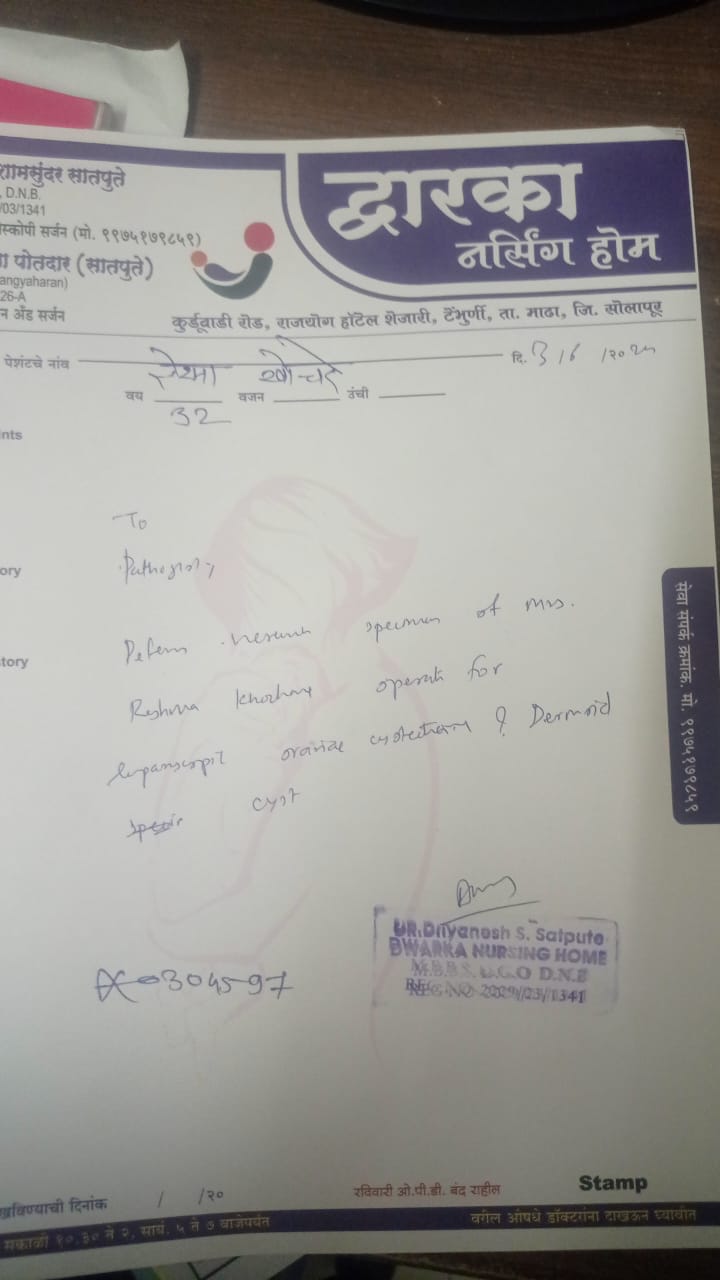 शामसुंदर सातपुते
द्वारका
नर्सिंग होम
, D.N.B.
/03/1341
स्कोपी सर्जन (मो. ९९७५१७९८५१)
ा पोतदार (सातपुते)
angyaharan)
26-A
न अँड सर्जन
कुर्डूवाडी रोड, राजयोग हॉटेल शेजारी, टेंभुर्णी, ता. माढा, जि. सोलापूर
पेशंटचे नांव रेश्मा दि. 3/6/२०२५
वय 32 वजन उंची
nts
To
ory
Pathology
tory
specimen of Mrs.
Reshma operate for
ovarian ? Dermoid
cyst
सेवा संपर्क क्रमांक. मो. ९९७५१७९८५१
DR. Dnyanesh S. Satpute
DWARKA NURSING HOME
M.B.B.S. D.G.O D.N.B
REG NO 1341
0304597
खविण्याची दिनांक / /२०
रविवारी ओ.पी.डी. बंद राहील
Stamp
सकाळी १०.३० ते २, सायं. ५ ते ७ वाजेपर्यंत
वरील औषधे डॉक्टरांना दाखऊन घ्यावीत